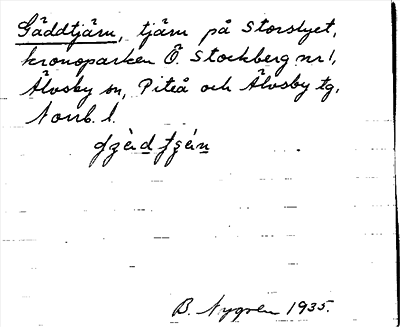 Gäddtjärn, tjärn på Storslyet,
kronoparken Ö. Stockberg nr 1,
Älvsby sn, Piteå och Älvsby tg,
Norrb. l.
B. Nygren 1935.